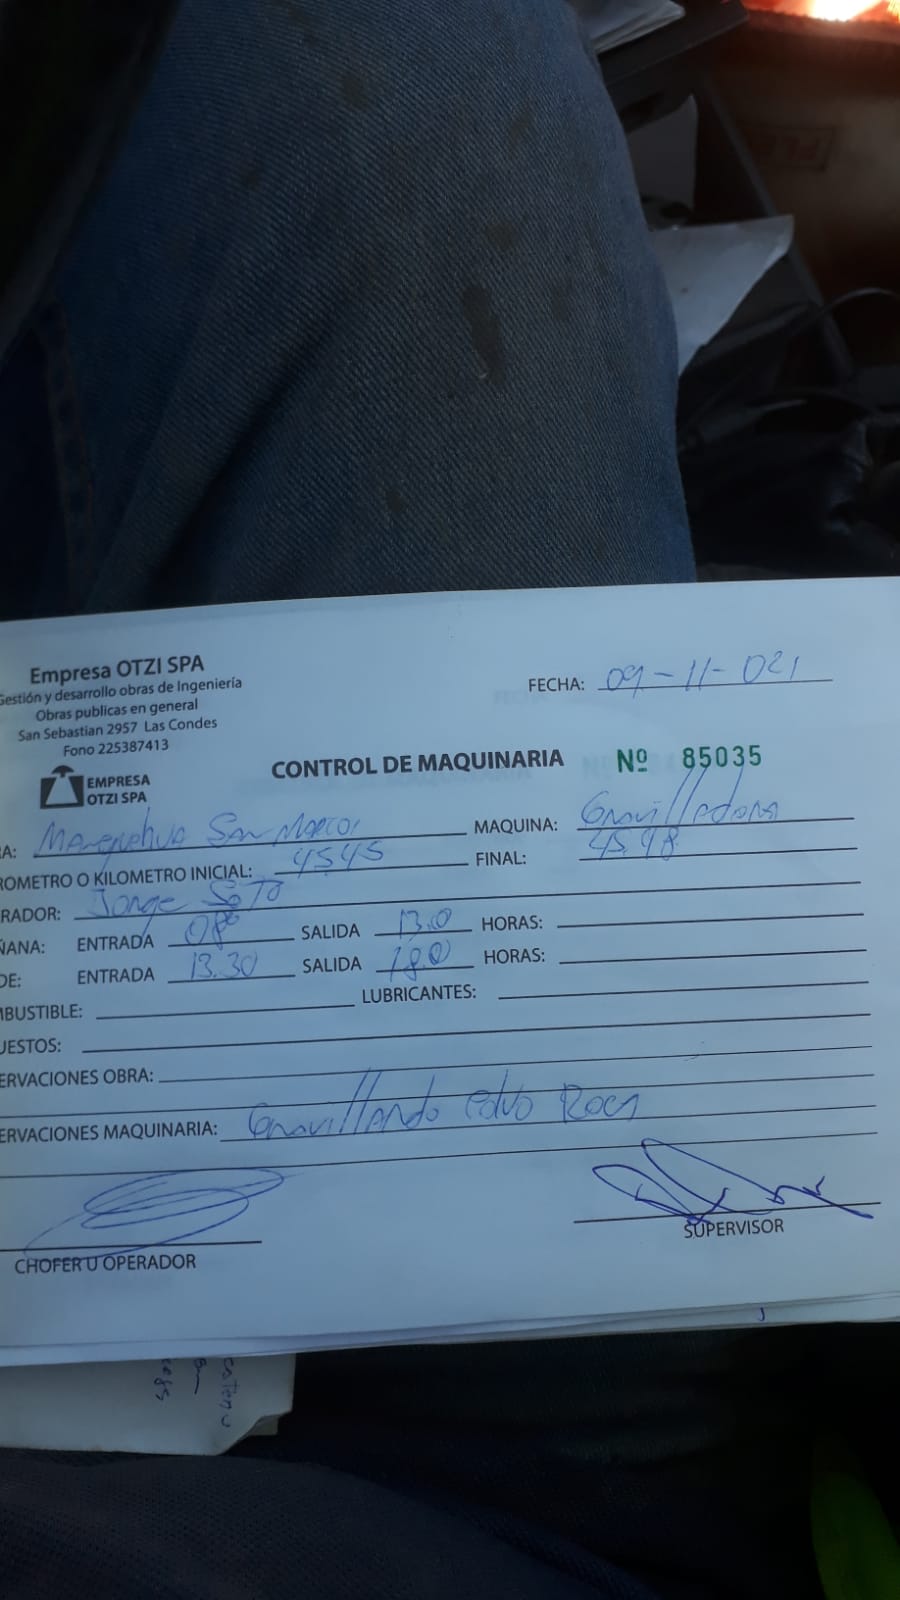 Empresa OTZI SPA
Gestión y desarrollo obras de Ingeniería
Obras publicas en general
San Sebastian 2957 Las Condes
Fono 225387413
FECHA: 09-11-021
EMPRESA
OTZI SPA
CONTROL DE MAQUINARIA Nº 85035
A: San Marcos MAQUINA: Gravilladora
ROMETRO O KILOMETRO INICIAL: 4545 FINAL: 4548
RADOR: Jorge Soto
ÑANA: ENTRADA 08⁰⁰ SALIDA 13.0 HORAS:
DE: ENTRADA 13.30 SALIDA 18.0 HORAS:
MBUSTIBLE: LUBRICANTES:
UESTOS:
ERVACIONES OBRA:
ERVACIONES MAQUINARIA: Gravillando
CHOFER U OPERADOR
SUPERVISOR